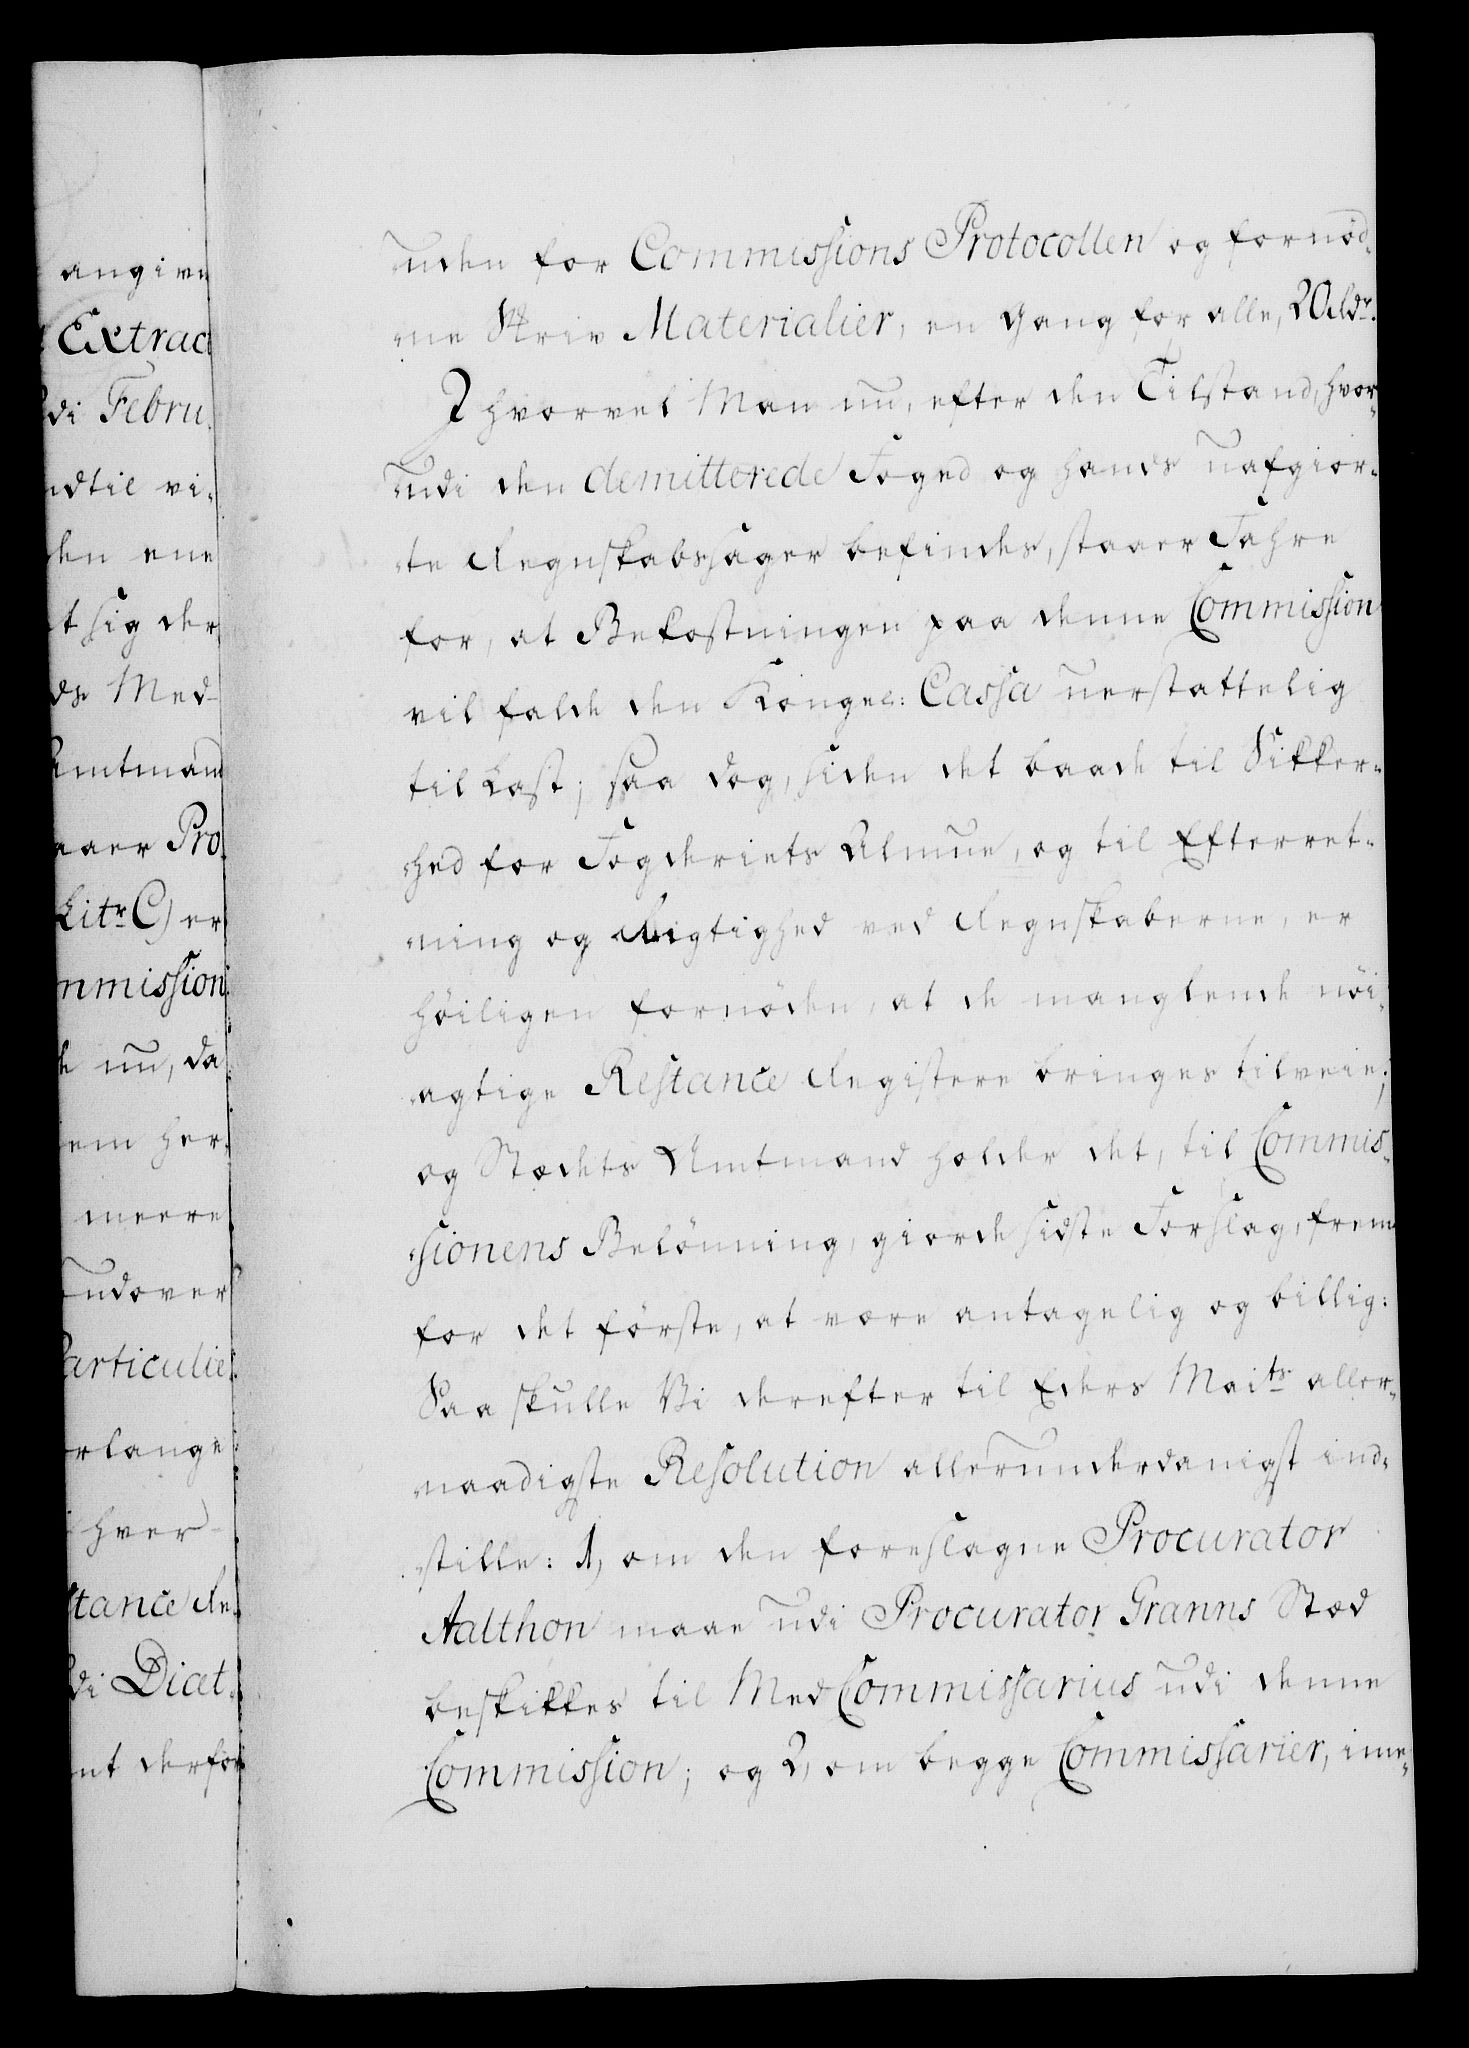 angive
Extract
di Febru
ndtil vi-
den ene
t sig der
ds Med-
Amtmand
aaer Pro
Litr C) er
mmission
nu, da
em her
meere
udover
Particulie
rlange
hver-
stance Re-
di Diæt
nt derfor
uden for Commissions Protocollen og fornød-
ne Skriv Materialier, en Gang for alle, 20 rdr.
I hvorvel Man nu, efter den Tilstand, hvor-
udi den demitterede Foged og hans uafgior-
te Regnskabssager befindes, staaer Fahre
for, at Bekostningen paa denne Commission
vil falde den Kongel: Cassa uerstattelig
til Last; saa dog, siden det baade til Sikker-
hed for Fogderiets Almue, og til Efterret-
ning og Rigtighed ved Regnskaberne, er
høiligen fornøden, at de manglende nøi-
agtige Restance Registere bringes tilveie;
og Stædets Amtmand holder det, til Commis-
sionens Belønning, giorde sidste Forslag, frem
for det første, at være antagelig og billig:
Saa skulle Vi derefter til Eders Maits aller-
naadigste Resolution allerunderdanigst ind-
stille: 1, om den foreslagne Procurator
Aalthon maae udi Procurator Granns Stæd
beskikkes til Med Commissarius udi denne
Commission; og 2, om begge Commissarier, ime-